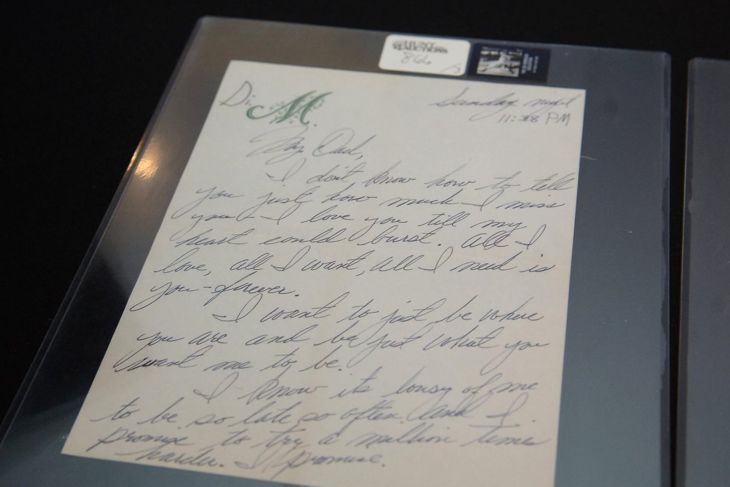 HUNT
AUCTIONS
86
Di M
Sunday night
11:28 PM
My Dad,
I don't know how to tell
you just how much I miss
you - I love you till my
heart could burst. All I
love, all I want, all I need is
you - forever.
I want to just be where
you are and be just what you
want me to be.
I know its lousy of me
to be so late so often and I
promise to try a million times
harder. I promise.